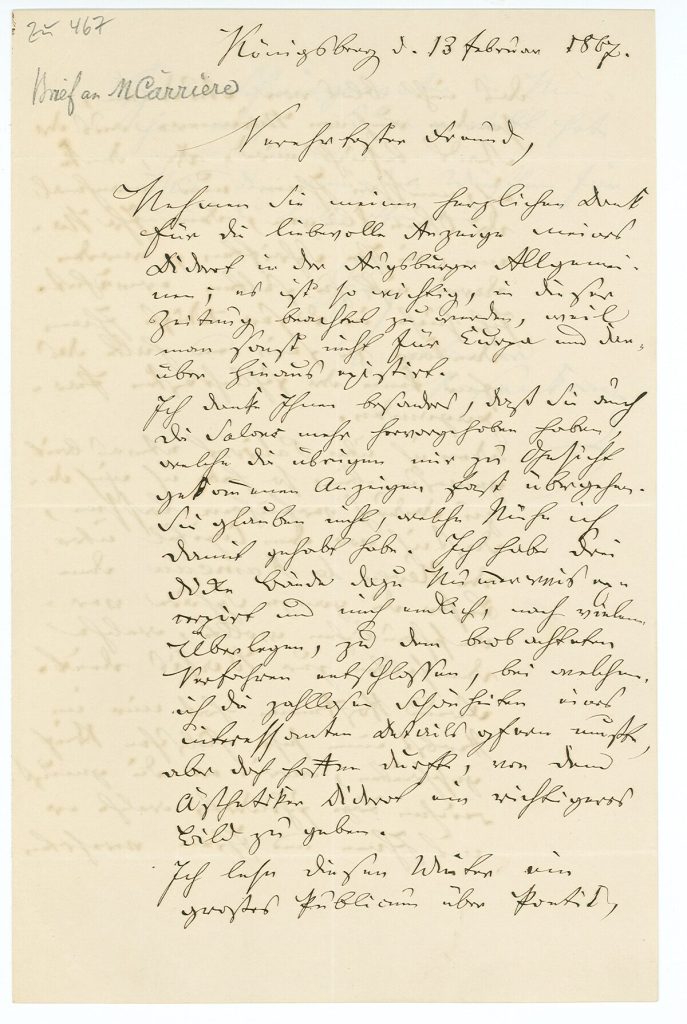 Zu 467
Königsberg d. 13 Februar 1867.
Brief an MCarriere
Verehrtester Freund,
Nehmen Sie meinen herzlichen Dank
für die liebevolle Anzeige meines
Diderot in der Augsburger Allgemei-
nen; es ist so wichtig, in dieser
Zeitung beachtet zu werden, weil
man sonst nicht für Europa und dar-
über hinaus existirt.
Ich danke Ihnen besonders, daß Sie auch
die Salons mehr hervorgehoben haben,
welche die übrigen mir zu Gesicht
gekommenen Anzeigen fast übergehen.
Sie glauben nicht, welche Mühe ich
damit gehabt habe. Ich habe drei
dicke Bände dazu Nummernweis ex-
cerpirt und mich endlich, nach vielem
Überlegen, zu dem beobachteten
Verfahren entschlossen, bei welchem
ich die zahllosen Schönheiten eines
interessanten Details opfern mußte,
aber doch hoffen durfte, von dem
Ästhetiker Diderot ein richtigeres
Bild zu geben.
Ich lese diesen Winter ein
großes Publicum über Poetik,